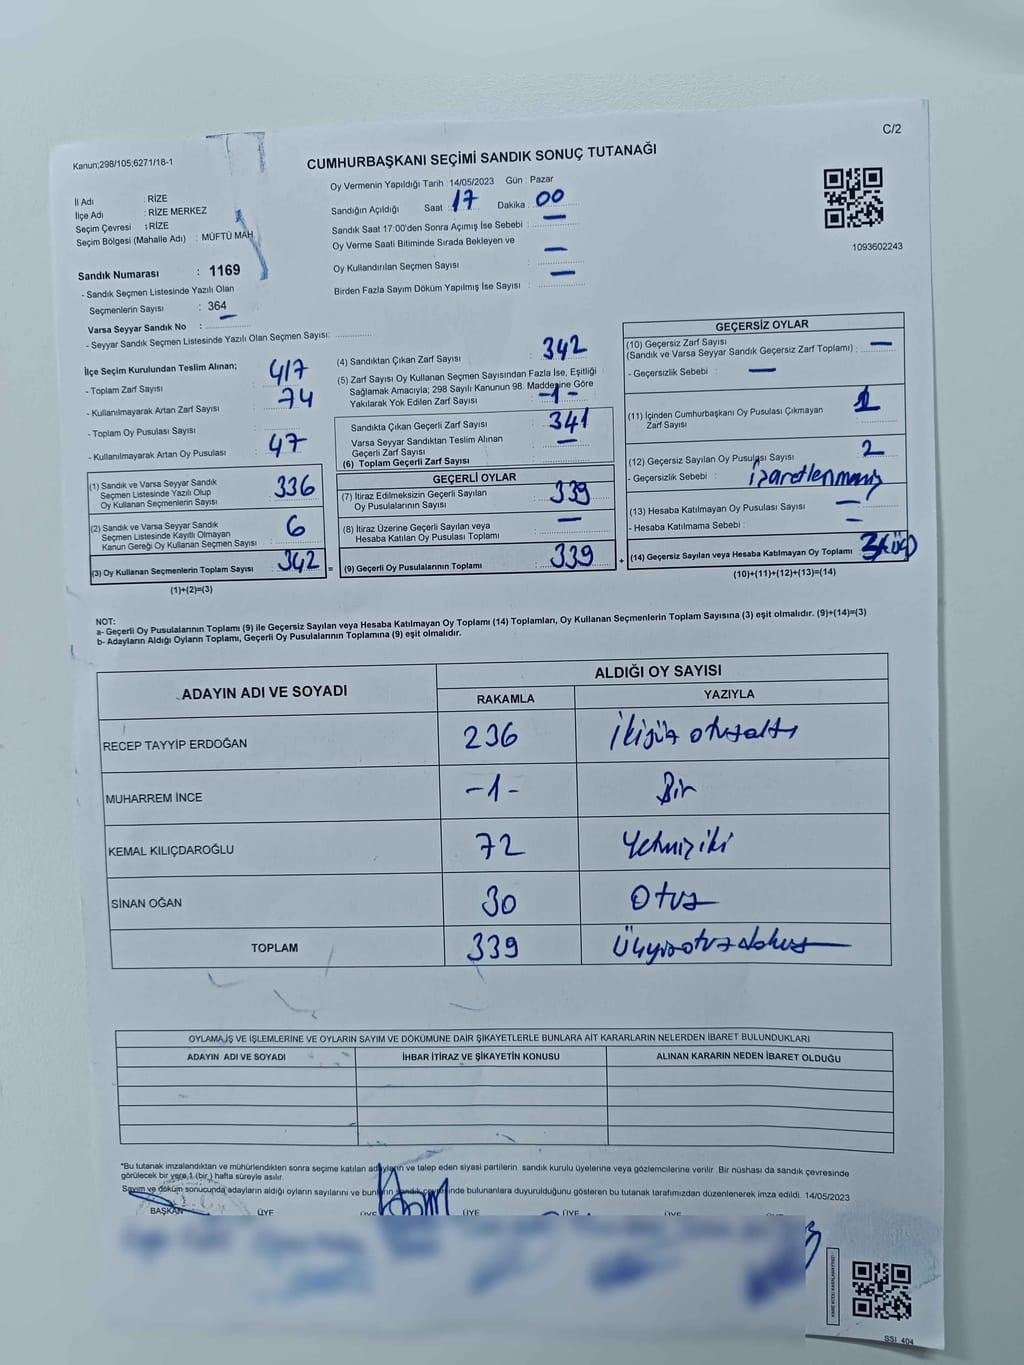 C/2
Kanun;298/105;6271/18-1
CUMHURBAŞKANI SEÇİMİ SANDIK SONUÇ TUTANAĞI
İl Adı : RİZE
İlçe Adı : RİZE MERKEZ
Seçim Çevresi : RİZE
Seçim Bölgesi (Mahalle Adı) : MÜFTÜ MAH.
Sandık Numarası : 1169
- Sandık Seçmen Listesinde Yazılı Olan
Seçmenlerin Sayısı : 364
Varsa Seyyar Sandık No : —
- Seyyar Sandık Seçmen Listesinde Yazılı Olan Seçmen Sayısı:
Oy Vermenin Yapıldığı Tarih : 14/05/2023 Gün : Pazar
Sandığın Açıldığı Saat : 17 Dakika : 00
Sandık Saat 17:00'den Sonra Açımış İse Sebebi : —
Oy Verme Saati Bitiminde Sırada Bekleyen ve
Oy Kullandırılan Seçmen Sayısı : —
Birden Fazla Sayım Döküm Yapılmış İse Sayısı : —
1093602243
İlçe Seçim Kurulundan Teslim Alınan;
- Toplam Zarf Sayısı : 417
- Kullanılmayarak Artan Zarf Sayısı : 74
- Toplam Oy Pusulası Sayısı :
- Kullanılmayarak Artan Oy Pusulası : 47
(1) Sandık ve Varsa Seyyar Sandık
Seçmen Listesinde Yazılı Olup
Oy Kullanan Seçmenlerin Sayısı : 336
(2) Sandık ve Varsa Seyyar Sandık
Seçmen Listesinde Kayıtlı Olmayan
Kanun Gereği Oy Kullanan Seçmen Sayısı : 6
(3) Oy Kullanan Seçmenlerin Toplam Sayısı : 342 =
(1)+(2)=(3)
(4) Sandıktan Çıkan Zarf Sayısı : 342
(5) Zarf Sayısı Oy Kullanan Seçmen Sayısından Fazla İse, Eşitliği
Sağlamak Amacıyla; 298 Sayılı Kanunun 98. Maddesine Göre
Yakılarak Yok Edilen Zarf Sayısı : -1-
Sandıkta Çıkan Geçerli Zarf Sayısı : 341
Varsa Seyyar Sandıktan Teslim Alınan
Geçerli Zarf Sayısı : —
(6) Toplam Geçerli Zarf Sayısı :
GEÇERLİ OYLAR
(7) İtiraz Edilmeksizin Geçerli Sayılan
Oy Pusulalarının Sayısı : 339
(8) İtiraz Üzerine Geçerli Sayılan veya
Hesaba Katılan Oy Pusulası Toplamı : —
(9) Geçerli Oy Pusulalarının Toplamı : 339 +
GEÇERSİZ OYLAR
(10) Geçersiz Zarf Sayısı
(Sandık ve Varsa Seyyar Sandık Geçersiz Zarf Toplamı) : —
- Geçersizlik Sebebi : —
(11) İçinden Cumhurbaşkanı Oy Pusulası Çıkmayan
Zarf Sayısı : 1
(12) Geçersiz Sayılan Oy Pusulası Sayısı : 2
- Geçersizlik Sebebi : İşaretlenmemiş
(13) Hesaba Katılmayan Oy Pusulası Sayısı : —
- Hesaba Katılmama Sebebi : —
(14) Geçersiz Sayılan veya Hesaba Katılmayan Oy Toplamı : 3
(10)+(11)+(12)+(13)=(14)
NOT:
a- Geçerli Oy Pusulalarının Toplamı (9) ile Geçersiz Sayılan veya Hesaba Katılmayan Oy Toplamı (14) Toplamları, Oy Kullanan Seçmenlerin Toplam Sayısına (3) eşit olmalıdır. (9)+(14)=(3)
b- Adayların Aldığı Oyların Toplamı, Geçerli Oy Pusulalarının Toplamına (9) eşit olmalıdır.
ADAYIN ADI VE SOYADI ALDIĞI OY SAYISI
RAKAMLA YAZIYLA
RECEP TAYYİP ERDOĞAN 236 İkiyüz otuzaltı
MUHARREM İNCE -1- Bir
KEMAL KILIÇDAROĞLU 72 Yetmişiki
SİNAN OĞAN 30 Otuz
TOPLAM 339 Üçyüzotuzdokuz
OYLAMA,İŞ VE İŞLEMLERİNE VE OYLARIN SAYIM VE DÖKÜMÜNE DAİR ŞİKAYETLERLE BUNLARA AİT KARARLARIN NELERDEN İBARET BULUNDUKLARI
ADAYIN ADI VE SOYADI İHBAR İTİRAZ VE ŞİKAYETİN KONUSU ALINAN KARARIN NEDEN İBARET OLDUĞU
*Bu tutanak imzalandıktan ve mühürlendikten sonra seçime katılan adayların ve talep eden siyasi partilerin sandık kurulu üyelerine veya gözlemcilerine verilir. Bir nüshası da sandık çevresinde
görülecek bir yere 1 (bir ) hafta süreyle asılır.
Sayım ve döküm sonucunda adayların aldığı oyların sayılarını ve bunların sandık çevresinde bulunanlara duyurulduğunu gösteren bu tutanak tarafımızdan düzenlenerek imza edildi. 14/05/2023
BAŞKAN ÜYE ÜYE ÜYE ÜYE ÜYE
SSI_404